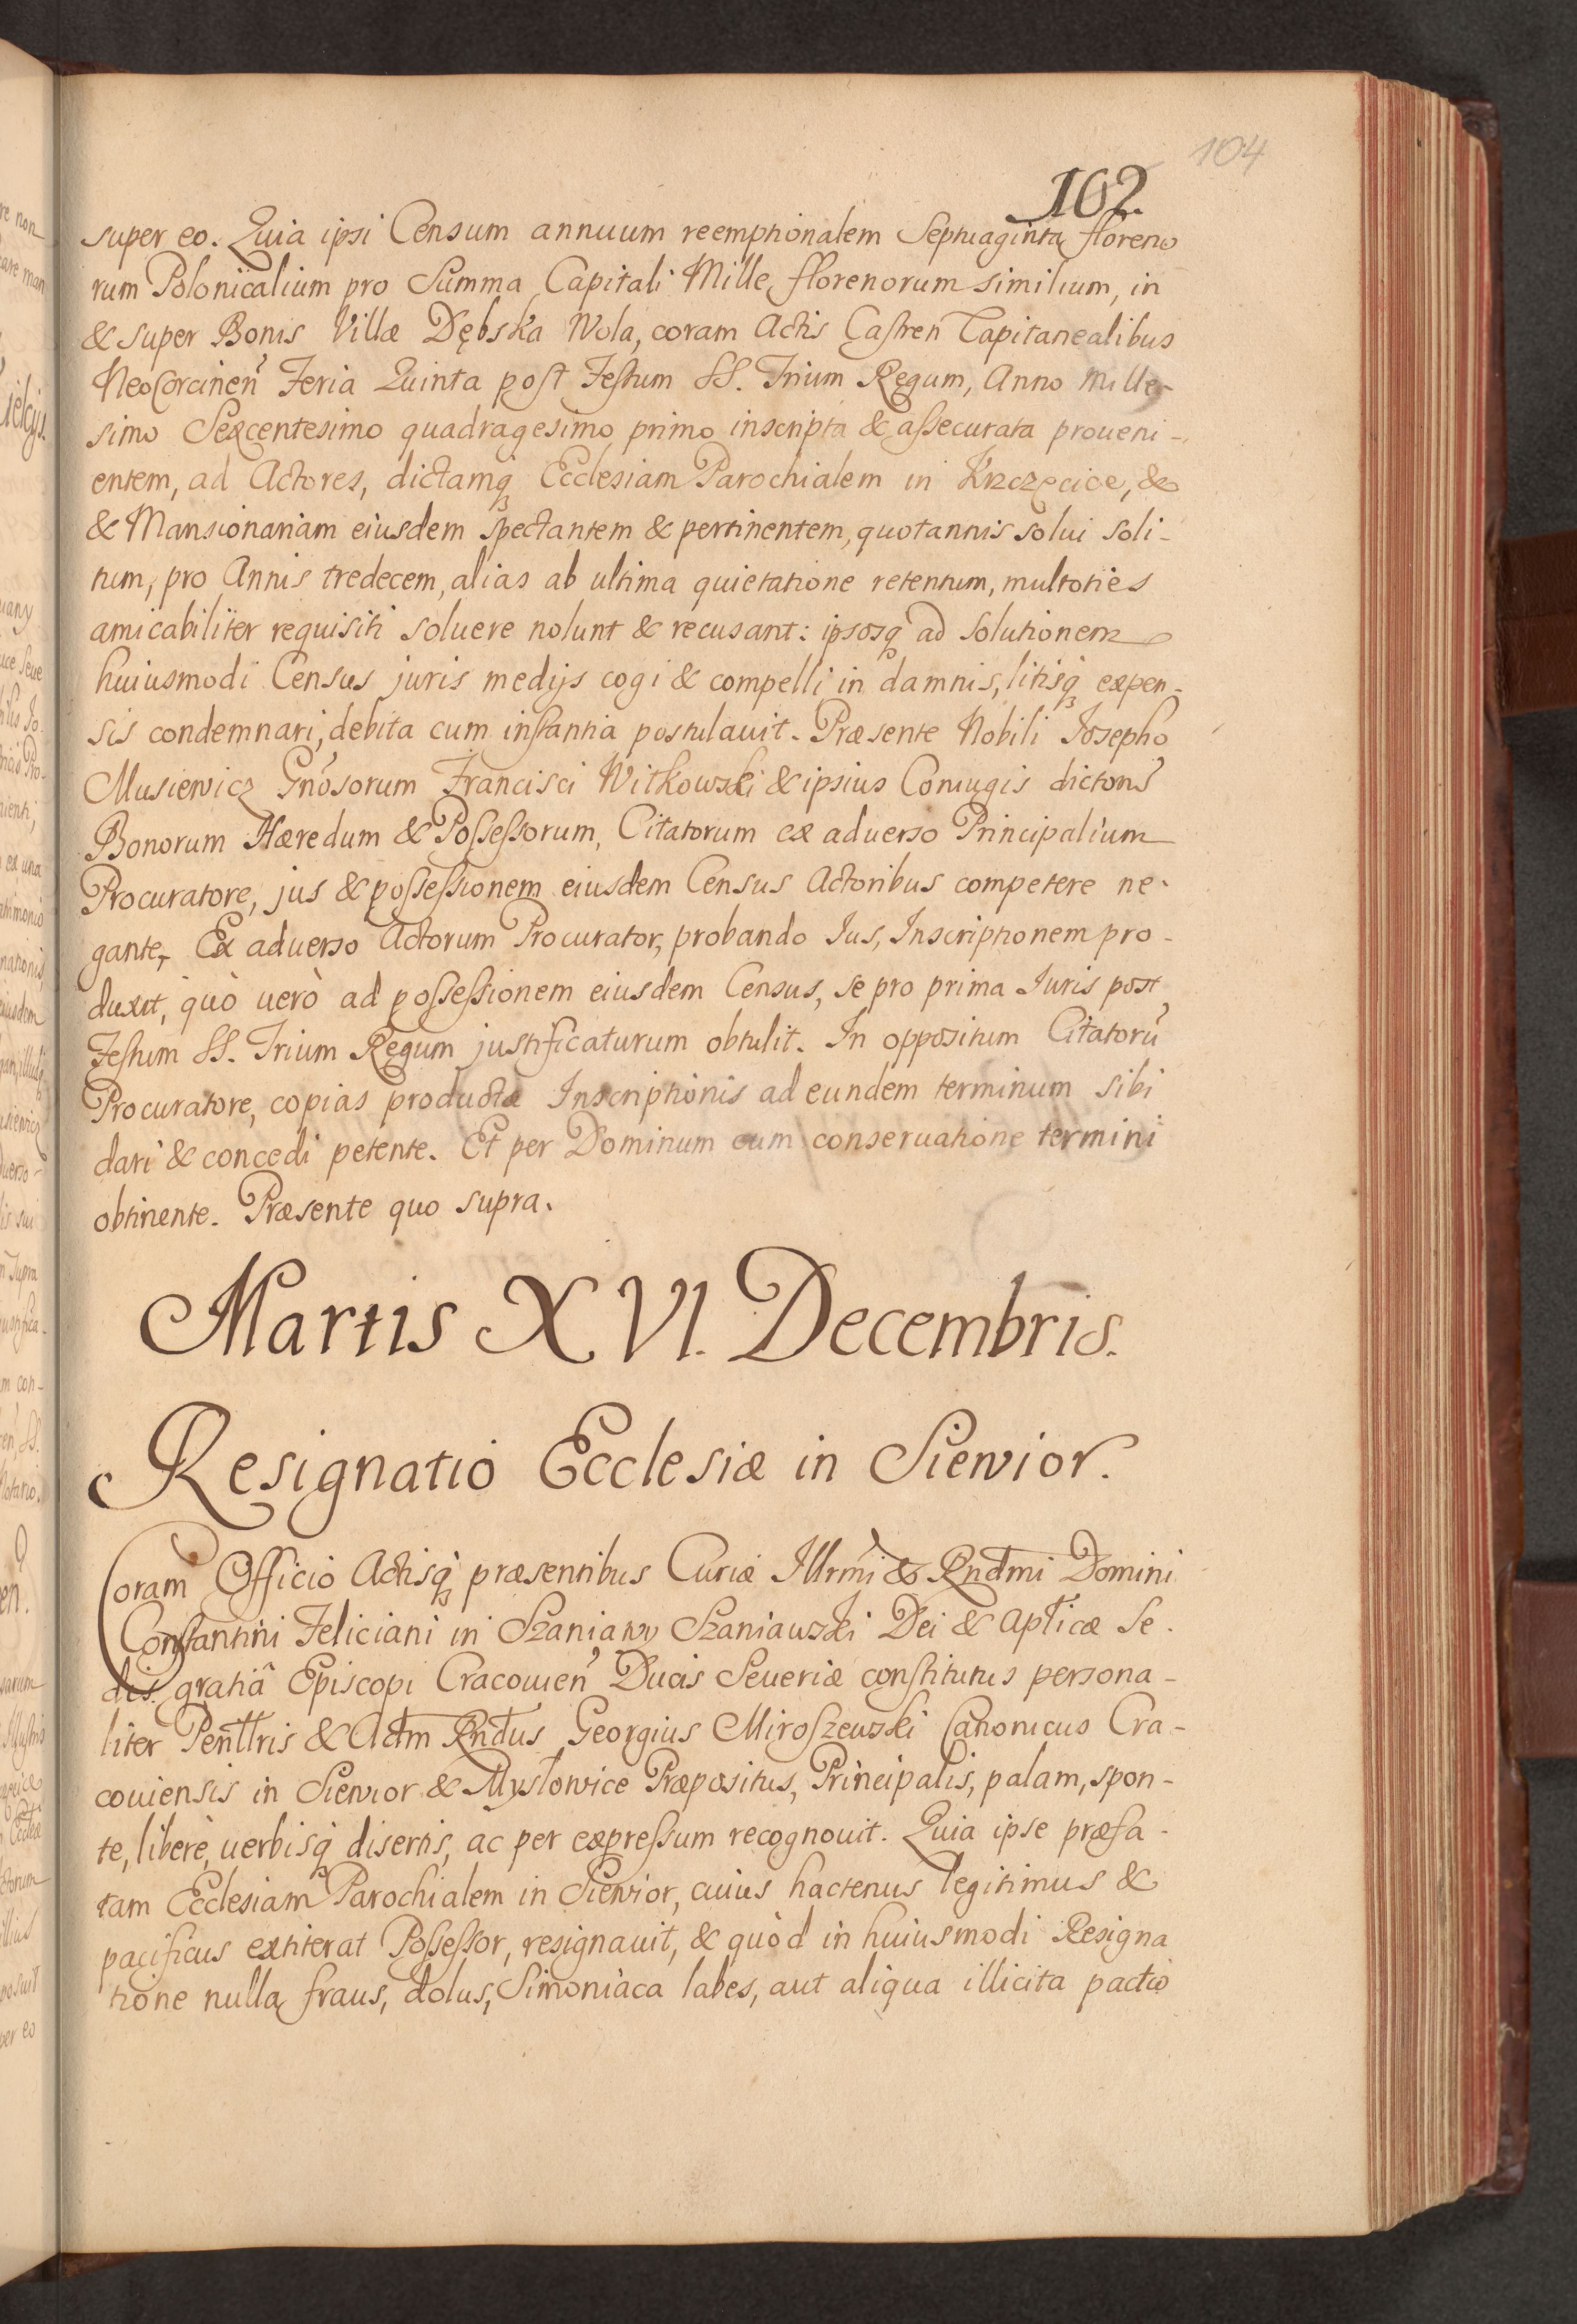 104
102
super eo. Quia ipsi Censum annuum reemptionalem Septuaginta floreno
rum Polonicalium pro Summa Capitali Mille florenorum similium, in
& super Bonis Villæ Dębska Wola, coram Actis Castren̄ Capitanealibus
NeoCorcinen̄ Feria Quinta post Festum SS. Trium Regum, Anno Mille-
simo Sexcentesimo quadragesimo primo inscripta & assecurata proueni-
entem, ad Actores, dictamq̨ Ecclesiam Parochialem in Krzczęcice, &
& Mansionariam eiusdem spectantem & pertinentem, quotannis solui soli-
tum, pro Annis tredecem, alias ab ultima quietatione retentum, multoties
amicabiliter requisiti soluere nolunt & recusant: ipsosq̨ ad solutionem
huiusmodi Census juris medijs cogi & compelli in damnis, litisq̨ expen-
sis condemnari, debita cum instantia postulauit. Præsente Nobili Josepho
Musiewicz Gn̄osorum Francisci Witkowski & ipsius Coniugis dictorū
Bonorum Hæredum & Possessorum, Citatorum ex aduerso Principalium
Procuratore, jus & possessionem eiusdem Census Actoribus competere ne-
gante, Ex aduerso Actorum Procurator, probando Ius, Inscriptionem pro-
duxit, quò uerò ad possessionem eiusdem Census, se pro prima Iuris post
Festum SS. Trium Regum justificaturum obtulit. In oppositum Citatorū
Procuratore, copias productæ Inscriptionis ad eundem terminum sibi
dari & concedi petente. Et per Dominum cum conseruatione termini
obtinente. Præsente quo supra.
Martis XVI. Decembris.
Resignatio Ecclesiæ in Siewior.
Coram Officio Actisq̨ præsentibus Curiæ Illrm̄i & Rndm̄i Domini
Constantini Feliciani in Szaniawy Szaniawski Dei & Aplicæ Se-
dis gratiâ Episcopi Cracouien̄ Ducis Seueriæ constitutus persona-
liter Penllris & Adm Rndus Georgius Miroszewski Canonicus Cra-
couiensis in Siewior & Mysłowice Præpositus, Principalis, palam, spon-
te, liberè, uerbisq̨ disertis, ac per expressum recognouit. Quia ipse præfa-
tam Ecclesiam Parochialem in Siewior, cuius hactenus legitimus &
pacificus extiterat Possessor, resignauit, & quòd in huiusmodi Resigna
tione nulla fraus, dolus, Simoniaca labes, aut aliqua illicita pactio